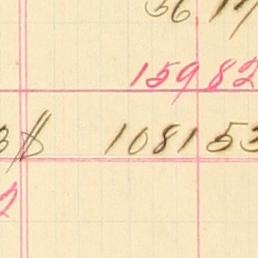 56 17
159 82
3 $ 1081 53
2